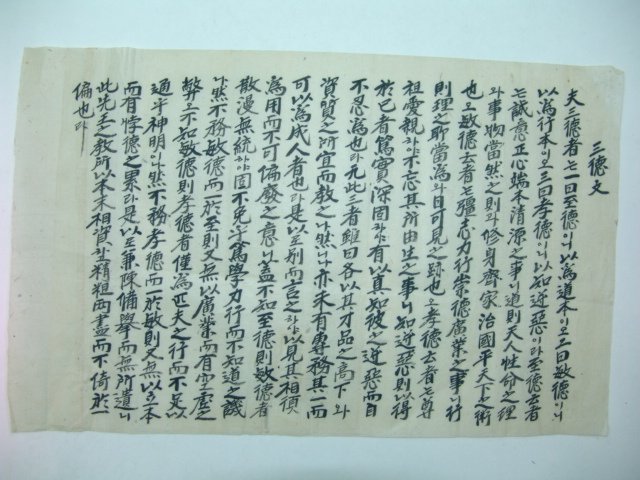 三德文
夫三德者는一曰至德이니以爲道本이오二曰敏德이니
以爲行本이오三曰孝德이니以知逆惡이라至德云者
는誠意正心端本淸源之事니道則天人性命之理
와事物當然之則과修身齊家治國平天下之術
也오敏德云者는彊志力行崇德廣業之事니行
則理之所當爲와日可見之跡也오孝德云者는尊
祖愛親하야不忘其所由生之事니知逆惡則以得
於己者篤實深固하야有以眞知彼之逆惡而自
不忍爲也라凡此三者雖曰各以其才品之高下와
資質之所宜而敎之나然이나亦未有專務其一而
可以爲成人者也라是以로列而言之하야以見其相須
爲用而不可偏廢之意니蓋不知至德則敏德者
散漫無統하야固不免乎篤學力行而不知道之譏
나然不務敏德而一於至則又無以廣業而有空虛之
弊오不知敏德則孝德者僅爲匹夫之行而不足以
通乎神明이나然不務孝德而一於敏則又無以立本
而有悖德之累라是以로兼陳備擧而無所遺니
此先王之敎所以本末相資와精粗兩盡而不倚於一
偏也라